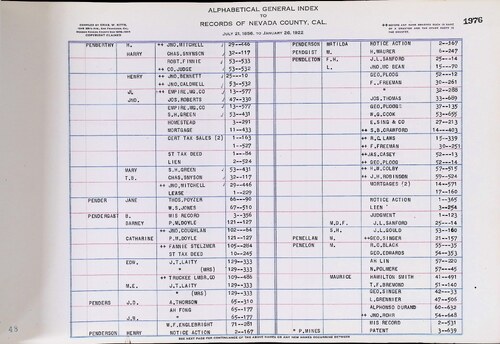 ALPHABETICAL GENERAL INDEX
TO
RECORDS OF NEVADA COUNTY, CAL.
JULY 21, 1856, TO JANUARY 26, 1922
1976
COPYRIGHT CLAIMED
PENBERTHY H. ++ JNO. MITCHELL 29--446
HARRY CHAS. SNYNSON 32--117
ROBT. FINNIE 53--533
++ CO. JUDGE 53--532
HENRY ++ JNO. BENNETT 25---10
++ JNO. CALDWELL 53--532
J. ++ EMPIRE MG. CO 13--577
JNO. JOS. ROBERTS 47--330
++ EMPIRE MG. CO 13--577
S.H. GREEN 53--431
HOMESTEAD 3--291
MORTGAGE 11--433
CERT TAX SALES (2) 1--163
1--527
ST TAX DEED 1---84
LIEN 2--524
MARY S.H. GREEN 53--431
T.S. CHAS. SNYNSON 32--117
++ JNO. MITCHELL 29--446
LEASE 1--229
PENDER JANE THOS. POYZER 66---90
W.S. JONES 67--510
PENDERGAST B. MIS RECORD 3--356
BARNEY P.M. DOYLE 121--127
++ JNO. COUGHLAN 102---64
CATHARINE P.M. DOYLE 121--127
++ FANNIE STELZIMER 105--284
ST TAX DEED 10--245
EDW. J.T. LAITY 333--339
" (MRS) 333--339
++ TRUCKEE LMBR. CO 109--486
M.E. J.T. LAITY 333--339
" (MRS) 333--339
PENDERS J.D. A. THORSON 65--310
AH FONG 65--177
J.N. " 65--177
W.F. ENGLEBRIGHT 71--281
PENDERSON HENRY NOTICE ACTION 2--167
PENDERSON MATILDA NOTICE ACTION 2--167
PENDGIST M. H. MAURER 6--247
PENDLETON F.H. J.L. SANFORD 25---14
L. JNO. MC BEAN 15---70
GEO. PLOOG 52---12
F. FREEMAN 30--261
" 32--288
JOS. THOMAS 33--609
GEO. PLOOG 37--135
W.G. COOK 53--655
E. KING & CO 27--213
++ S.B. CRANFORD 14---403
++ R.C. LAWS 15--339
++ F. FREEMAN 30--251
++ JAS. CASEY 52---13
++ GEO. PLOOG 52---14
++ H.M. COLBY 57--515
++ J.H. ROBINSON 59--524
MORTGAGES (2) 14--571
17--160
NOTICE ACTION 1--365
LIEN 3--254
JUDGMENT 1--123
M.D.F. J.L. SANFORD 25---14
S.H. J.L. GOULD 53--160
PENELLAN M. ++ GEO. SINGER 21--157
PENELON M. R.C. BLACK 55---35
GEO. EDWARDS 54--353
AH LIN 57--220
N. POLMERE 57---45
MAURICE HAMILTON SMITH 44--491
T.F. BREMOND 51--140
GEO. SINGER 42---33
L. GRENNIER 47--506
ALPHONSO DURAND 60--432
++ JNO. ROHR 54--648
MIS RECORD 2--531
* P. MINES PATENT 3--639
49
SEE NEXT PAGE FOR CONTINUANCE OF THE ABOVE NAMES OR ANY NEW NAMES OCCURRING BETWEEN